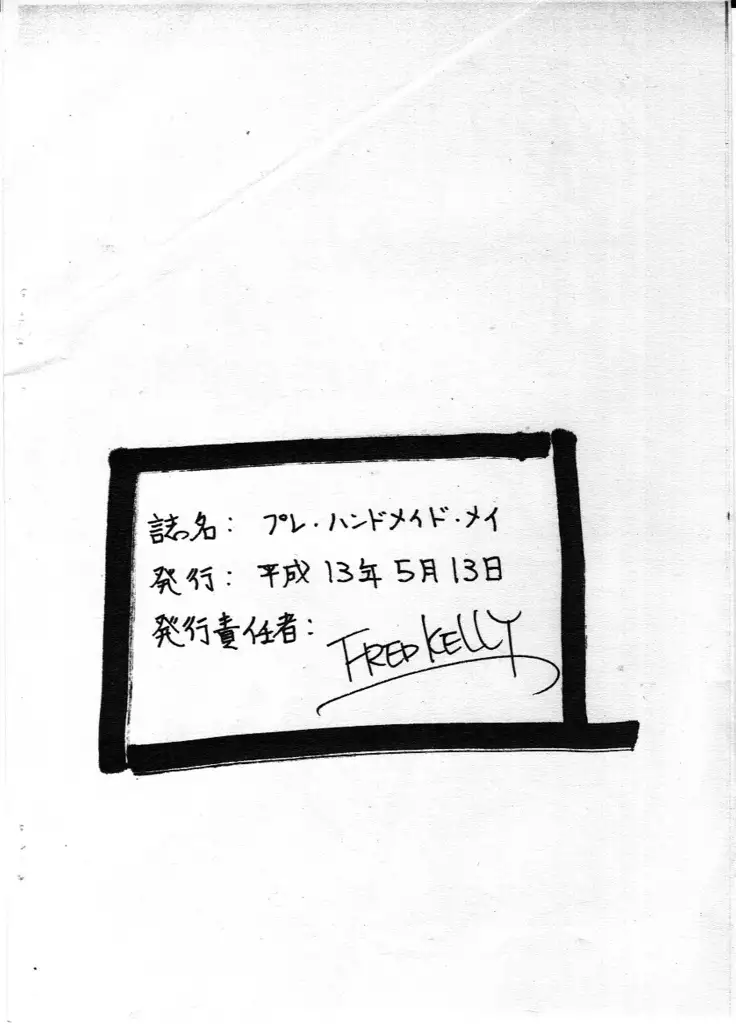 誌名: プレ・ハンドメイド・メイ
発行: 平成13年5月13日
発行責任者:
FRED KELLY